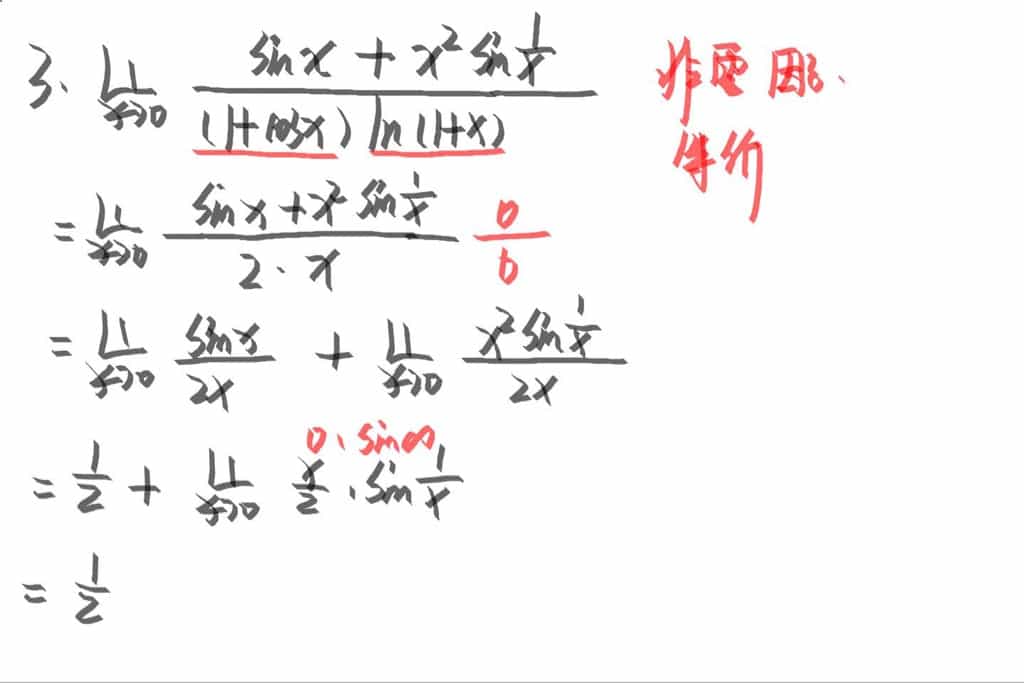 3. lim x→0 (sin x + x² sin 1/x) / ((1+cos x) ln(1+x))
非零因子.
等价
= lim x→0 (sin x + x² sin 1/x) / (2·x) 0/0
= lim x→0 sin x / 2x + lim x→0 (x² sin 1/x) / 2x
0·sin∞
= 1/2 + lim x→0 x/2 · sin 1/x
= 1/2